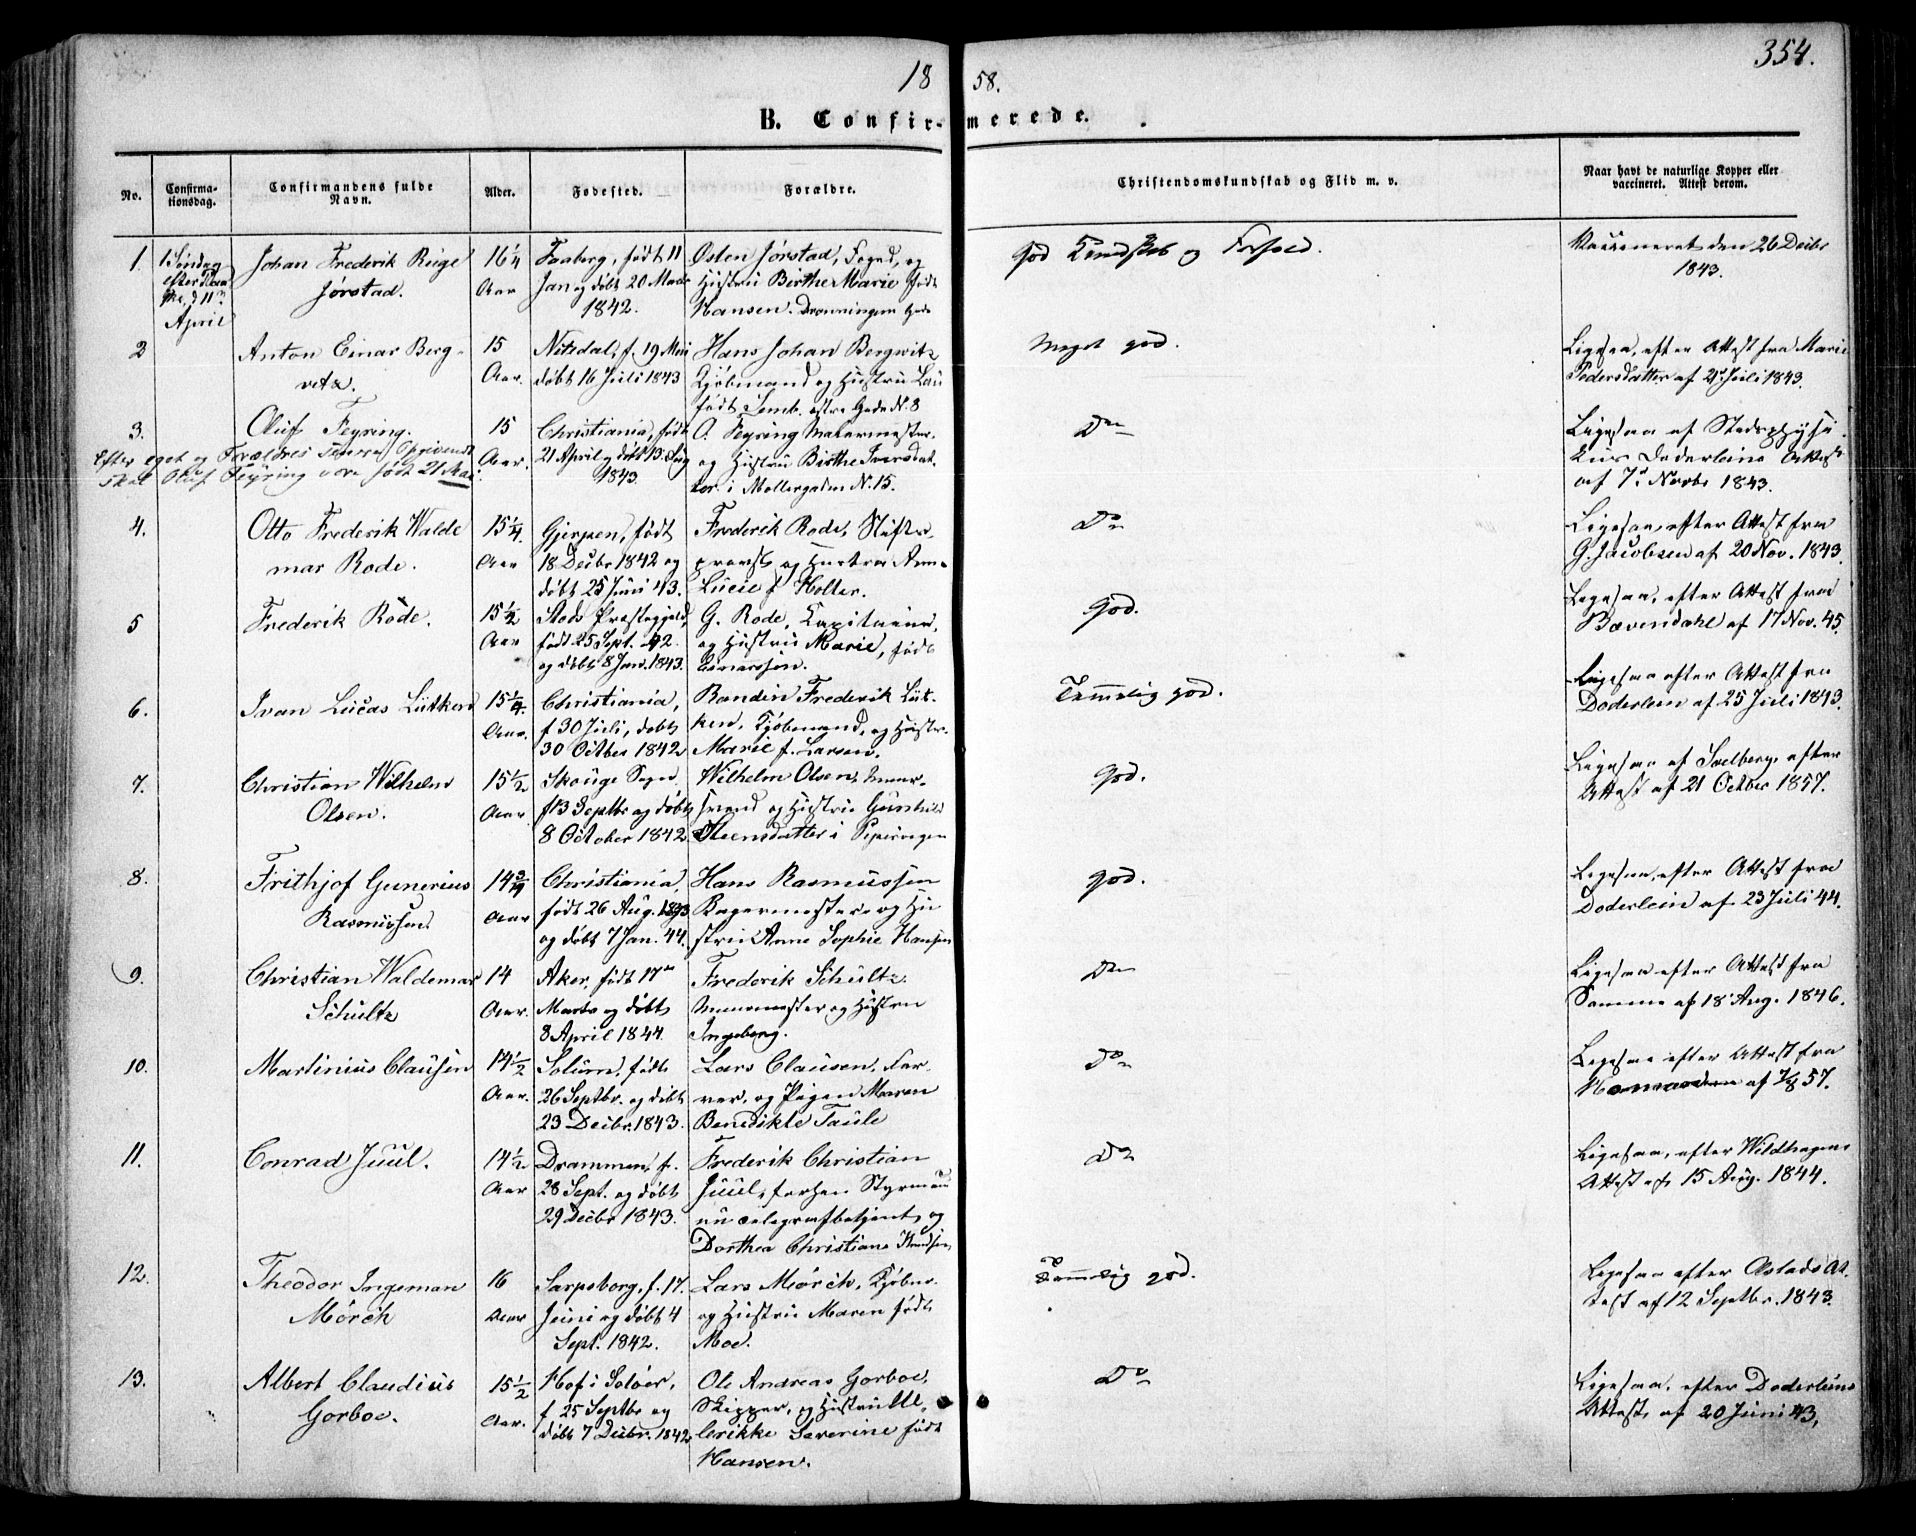 354.
18 58.
B. Confirmerede.
No.
Confirmationsdag.
Confirmandens fulde Navn.
Alder.
Fødested.
Forældre.
Christendomskundskab og Flid m. v.
Naar havt de naturlige Kopper eller vaccineret. Attest derom.
1.
1 Søndag
efter Paa
ske, d 11te
April
Johan Frederik Ruge
Jørstad.
16 1/4
Aar
Faaberg, født 11
Jan og døbt 20 Marts
1842.
Østen Jørstad, Foged, og
Hustru Birthe Marie født
Hansen. Dronningens Gade
God Kundskab og Forhold.
Vaccineret den 26 Decbr
1843.
2
Anton Einar Berg-
vitz.
15
Aar.
Nitedal, f. 19 Mai
døbt 16 Juli 1843
Hans Johan Bergwitz
Kjøbmand og Hustru
født Semb. østre Gade N. 8
Meget god.
Ligesaa, efter Attest fra Marie
Pedersdatter af 21 Juli 1843.
3.
Oluf Feyring.
Efter eget og Forældres Opgivende
skal Oluf Feyring være født 21 Mai.
15
Aar.
Christiania, født
21 April og døbt 13 Aug
1843
O. Feyring Malermester.
og Hustru Birthe Iversdat
ter i Møllergaden N. 15.
Do
Ligesaa af Stadsphysi
kus Døderleins Attest
af 7 Novbr 1843.
4.
Otto Frederik Walde
mar Rode.
15 1/4
Aar
Gjerpen, født
18 Decbr 1842 og
døbt 25 Juni 43.
Frederik Rode, Stifts-
provst og Hustru Anne
Lucie f Holter.
Do
Ligesaa, efter Attest fra
G. Jacobsen af 20 Nov. 1843.
5
Frederik Rode.
15 1/2
Aar
Stods Præstegjeld,
født 25 Sept. 42.
og døbt 8 Jan. 1843.
G. Rode, Capitaine,
og Hustru Marie, født
Einarssen.
God.
Ligesaa, efter Attest fra
Bævendahl af 17 Nov. 45.
6.
Ivan Lucas Lütken
15 1/4
Aar.
Christiania,
f 30 Juli, døbt
30 Octber 1842
Randin Frederik Lüt-
ken, Kjøbmand, og Hustr.
Marie f. Larsen.
Temmelig god.
Ligesaa efter Attest fra
Døderlein af 25 Juli 1843.
7.
Christian Wilhelm
Olsen.
15 1/2
Aar.
Skouge Sogn,
f 13 Septbr og døbt
8 October 1842.
Wilhelm Olsen, Muur-
svend og Hustru Gunhild
Steensdatter i Pipervigen
God.
Ligesaa af Soelberg, efter
Attest af 21 Octber 1857.
8.
Frithjof Gunerius
Rasmussen.
14 3/4
Aar
Christiania,
født 26 Aug. 1843
og døbt 7 Jan. 44.
Hans Rasmussen
Bagermester og Hu
stru Anne Sophie Hansen
God.
Ligesaa, efter Attest fra
Døderlein af 23 Juli 44.
9.
Christian Waldemar
Schultz
14
Aar.
Aker, født 17de
Marts og døbt
8 April 1844.
Frederik Schultz.
Muurmester og Hustru
Ingeborg.
Do
Ligesaa efter Attest fra
Samme af 18 Aug. 1846.
10.
Martinius Clausen
14 1/2
Aar.
Solum, født
26 Septbr. og døbt
23 Decbr. 1843.
Lars Clausen, Far
ver, og Pigen Maren
Benedikte Taule
Do
Ligesaa efter Attest fra
af 7/8 57.
11.
Conrad Juul.
14 1/2
Aar
Drammen, f.
28 Sept. og døbt
29 Decbr 1843.
Frederik Christian
Juul, forhen Styrmand
nu Telegrafbetjent, og
Dorthea Christiane Knudsen
Do
Ligesaa, efter Wildhagens
Attest af 15 Aug. 1844.
12.
Theodor Ingeman
Mørch
16
Aar
Sarpsborg, f. 17.
Juni og døbt 4
Sept. 1842.
Lars Mørch, Kjøbm.
og Hustru Maren født
Moe.
Temmelig god.
Ligesaa efter Astads At
test af 12 Septbr. 1843.
13.
Albert Claudius
Gorboe.
15 1/2
Aar.
Hof i Soløer,
f 25 Septbr og
døbt 7 Decbr. 1842
Ole Andreas Gorboe,
Skipper, og Hustru Ul,
lerikke Severine født
Hansen.
Do
Ligesaa, efter Døderleins
Attest, af 20 Juni 43,